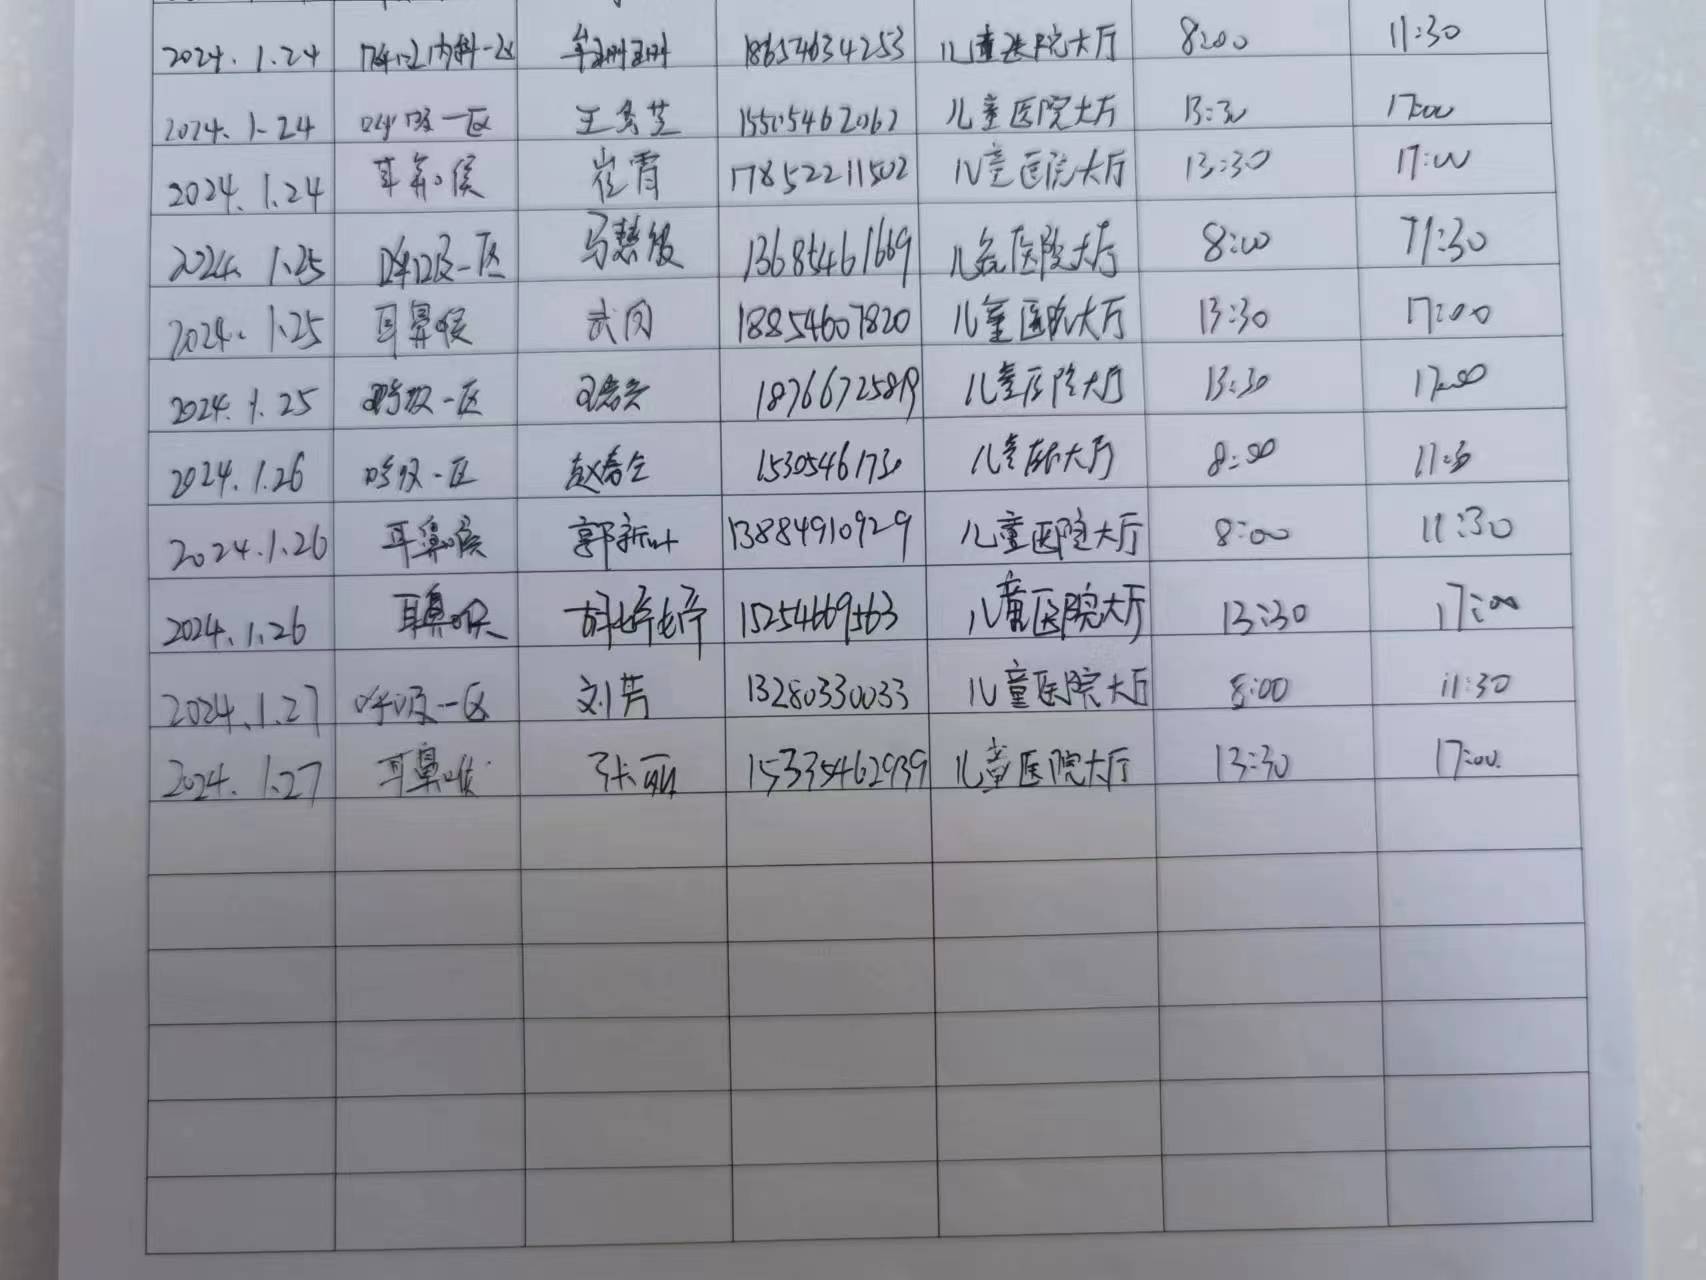 2024.1.24 呼吸内科一区 牟珊珊 18654634253 儿童医院大厅 8:00 11:30
2024.1.24 呼吸一区 王秀芝 15505462062 儿童医院大厅 13:30 17:00
2024.1.24 耳鼻喉 崔霄 17852211502 儿童医院大厅 13:30 17:00
2024.1.25 呼吸一区 马慧 13685461669 儿童医院大厅 8:00 11:30
2024.1.25 耳鼻喉 武闪 18854607820 儿童医院大厅 13:30 17:00
2024.1.25 呼吸一区 18766725819 儿童医院大厅 13:30 17:00
2024.1.26 呼吸一区 赵春仝 15305461730 儿童医院大厅 8:00 11:30
2024.1.26 耳鼻喉 郭新叶 13884910929 儿童医院大厅 8:00 11:30
2024.1.26 耳鼻喉 胡婷婷 15254669563 儿童医院大厅 13:30 17:00
2024.1.27 呼吸一区 刘芳 13280330033 儿童医院大厅 8:00 11:30
2024.1.27 耳鼻喉 张丽 15335462939 儿童医院大厅 13:30 17:00